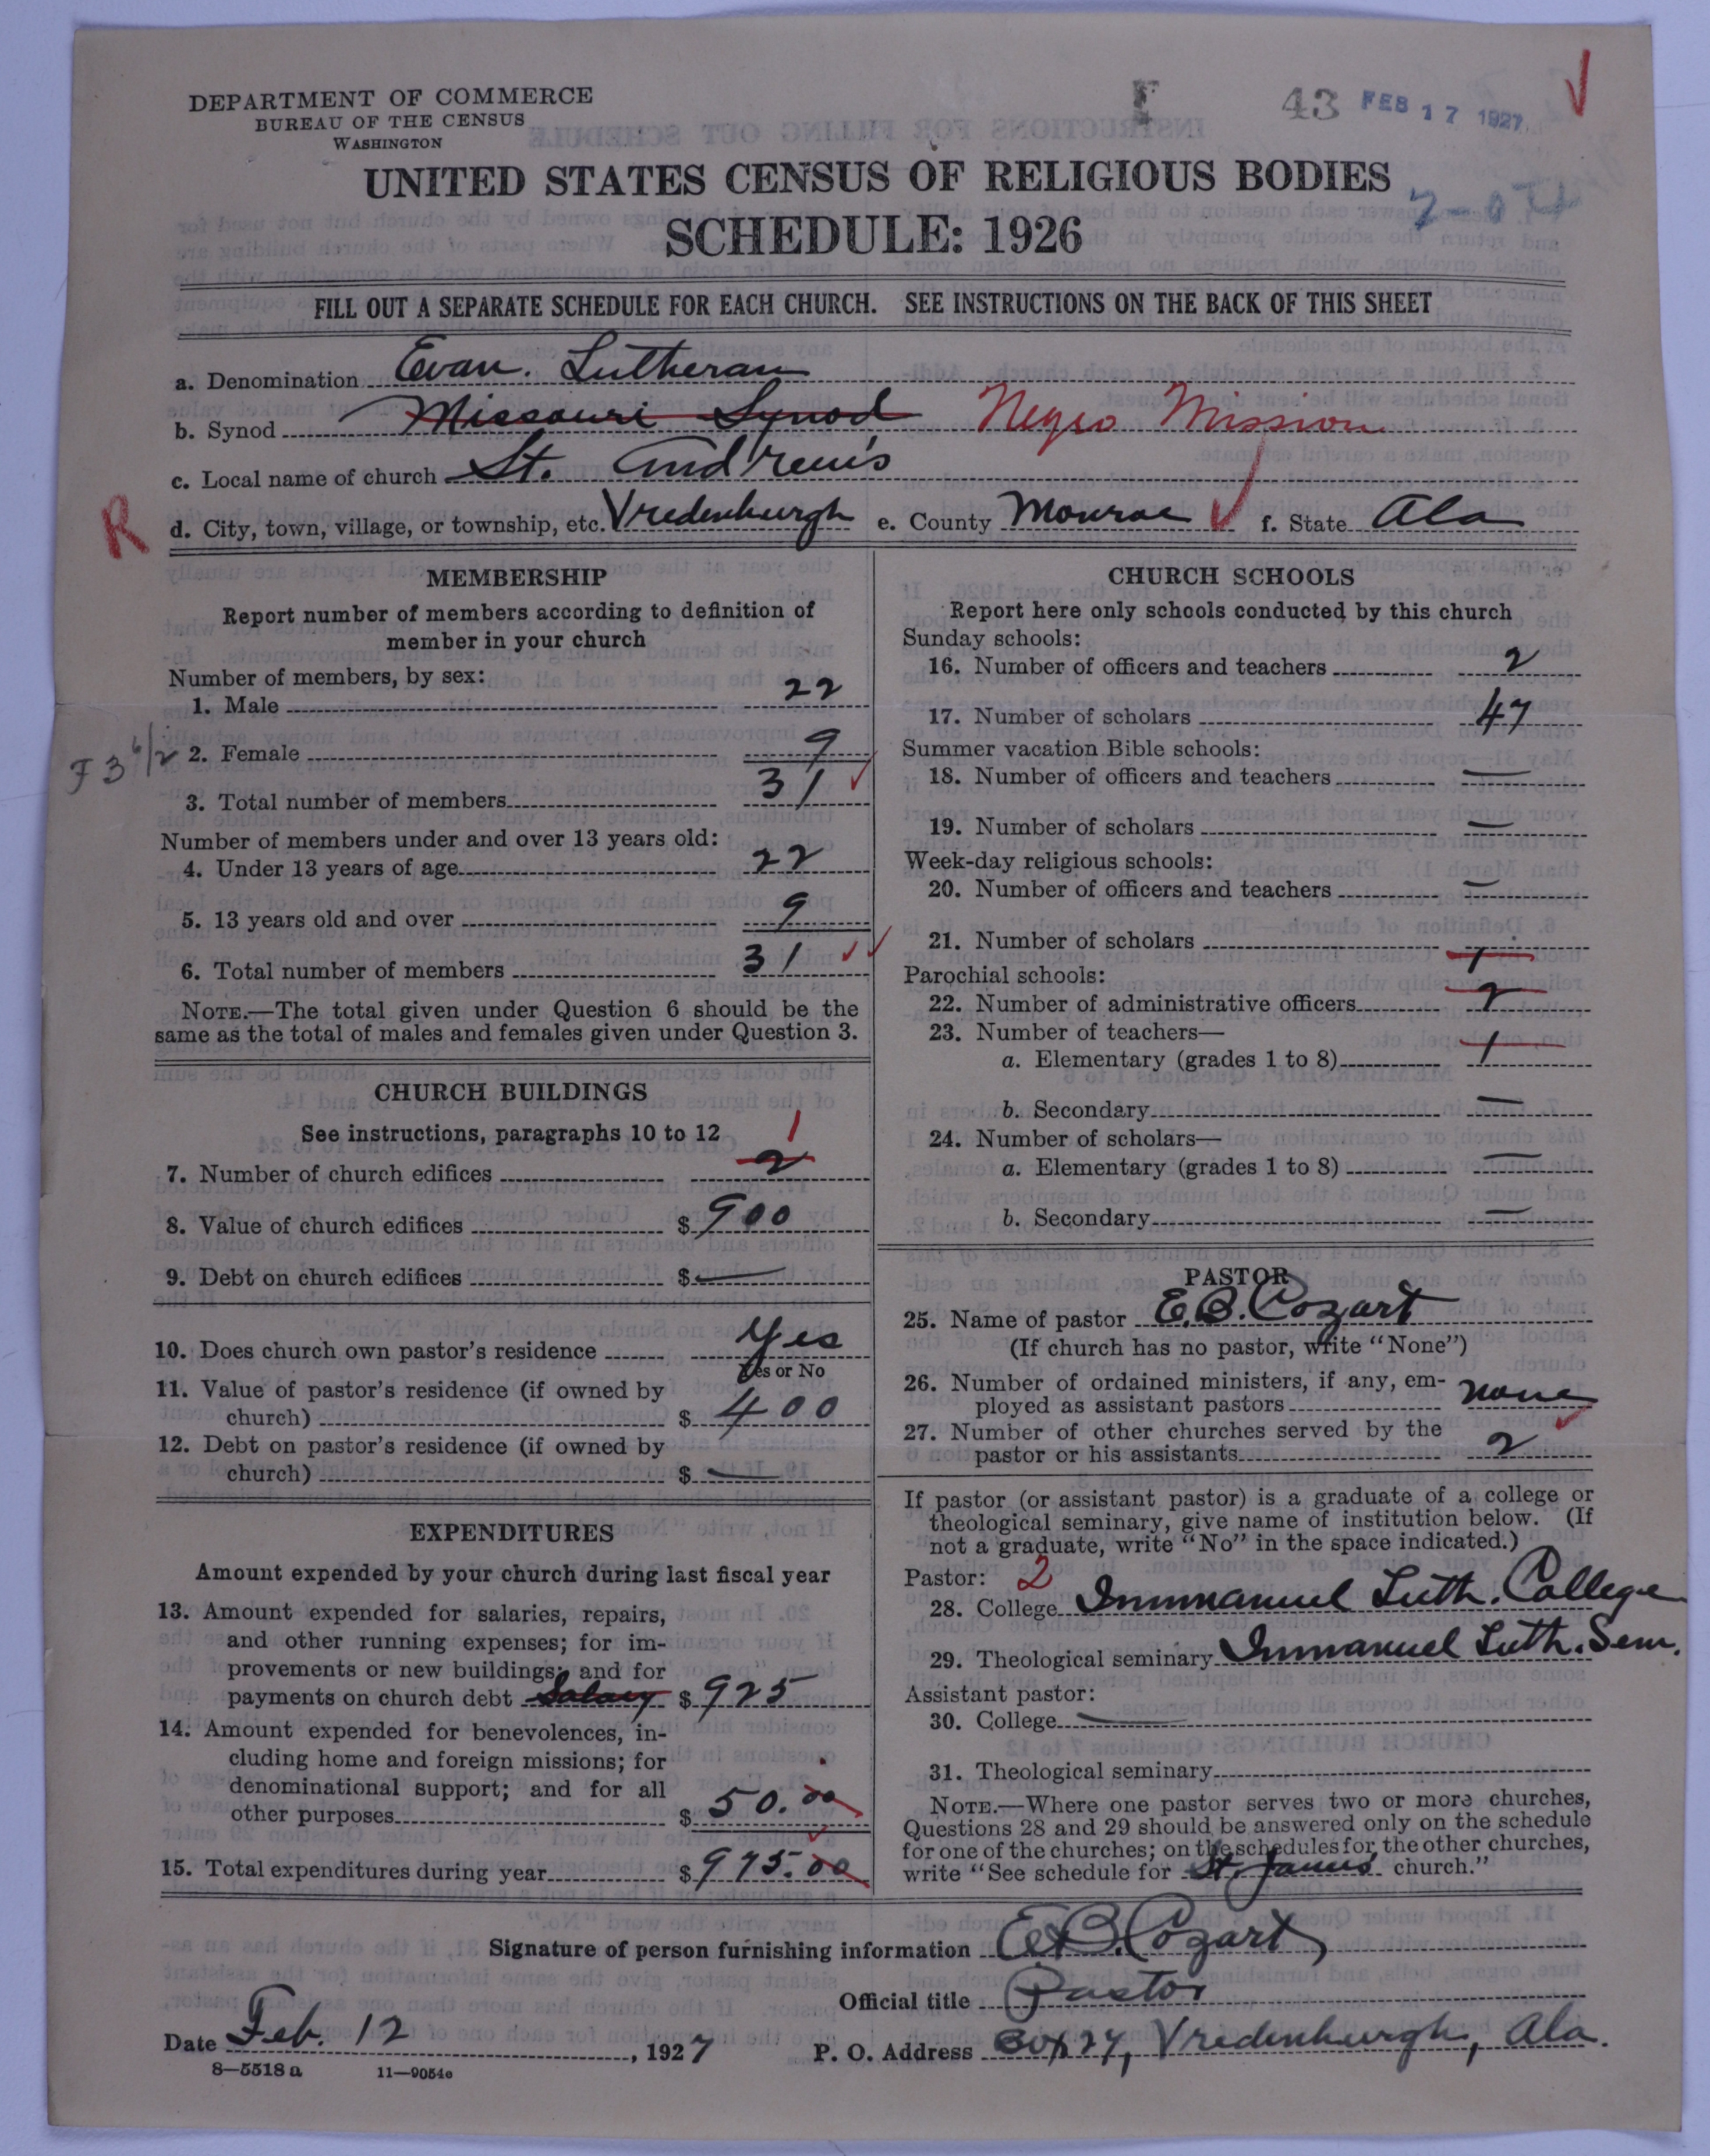 DEPARTMENT OF COMMERCE
BUREAU OF THE CENSUS
WASHINGTON
E 43 FEB 17 1927
UNITED STATES CENSUS OF RELIGIOUS BODIES
SCHEDULE: 1926
FILL OUT A SEPARATE SCHEDULE FOR EACH CHURCH. SEE INSTRUCTIONS ON THE BACK OF THIS SHEET
a. Denomination Evan. Lutheran
b. Synod Missouri Synod Negro Mission
c. Local name of church St. Andrew's
R
d. City, town, village, or township, etc. Vredenburgh e. County Monroe f. State Ala
MEMBERSHIP
Report number of members according to definition of
member in your church
Number of members, by sex:
1. Male 22
2. Female 9
3. Total number of members 31
Number of members under and over 13 years old:
4. Under 13 years of age 22
5. 13 years old and over 9
6. Total number of members 31
NOTE.—The total given under Question 6 should be the
same as the total of males and females given under Question 3.
CHURCH BUILDINGS
See instructions, paragraphs 10 to 12
1
7. Number of church edifices 2
8. Value of church edifices $ 900
9. Debt on church edifices $ —
10. Does church own pastor's residence Yes
Yes or No
11. Value of pastor's residence (if owned by
church) $ 400
12. Debt on pastor's residence (if owned by
church) $ —
EXPENDITURES
Amount expended by your church during last fiscal year
13. Amount expended for salaries, repairs,
and other running expenses; for im-
provements or new buildings; and for
payments on church debt Salary $ 925
14. Amount expended for benevolences, in-
cluding home and foreign missions; for
denominational support; and for all
other purposes $ 50.00
15. Total expenditures during year $ 975.00
CHURCH SCHOOLS
Report here only schools conducted by this church
Sunday schools:
16. Number of officers and teachers 2
17. Number of scholars 47
Summer vacation Bible schools:
18. Number of officers and teachers —
19. Number of scholars —
Week-day religious schools:
20. Number of officers and teachers —
21. Number of scholars
Parochial schools:
22. Number of administrative officers 2
23. Number of teachers—
a. Elementary (grades 1 to 8) 1
b. Secondary —
24. Number of scholars—
a. Elementary (grades 1 to 8) —
b. Secondary —
PASTOR
25. Name of pastor E.B. Cozart
(If church has no pastor, write "None")
26. Number of ordained ministers, if any, em-
ployed as assistant pastors none
27. Number of other churches served by the
pastor or his assistants 2
If pastor (or assistant pastor) is a graduate of a college or
theological seminary, give name of institution below. (If
not a graduate, write "No" in the space indicated.)
Pastor: 2
28. College Immanuel Luth. College
29. Theological seminary Immanuel Luth. Sem.
Assistant pastor:
30. College —
31. Theological seminary
NOTE.—Where one pastor serves two or more churches,
Questions 28 and 29 should be answered only on the schedule
for one of the churches; on the schedules for the other churches,
write "See schedule for St. James church."
Signature of person furnishing information E.B. Cozart
Official title Pastor
Date Feb. 12, 1927 P. O. Address Box 27, Vredenburgh, Ala.
8—5518 a 11—9054e